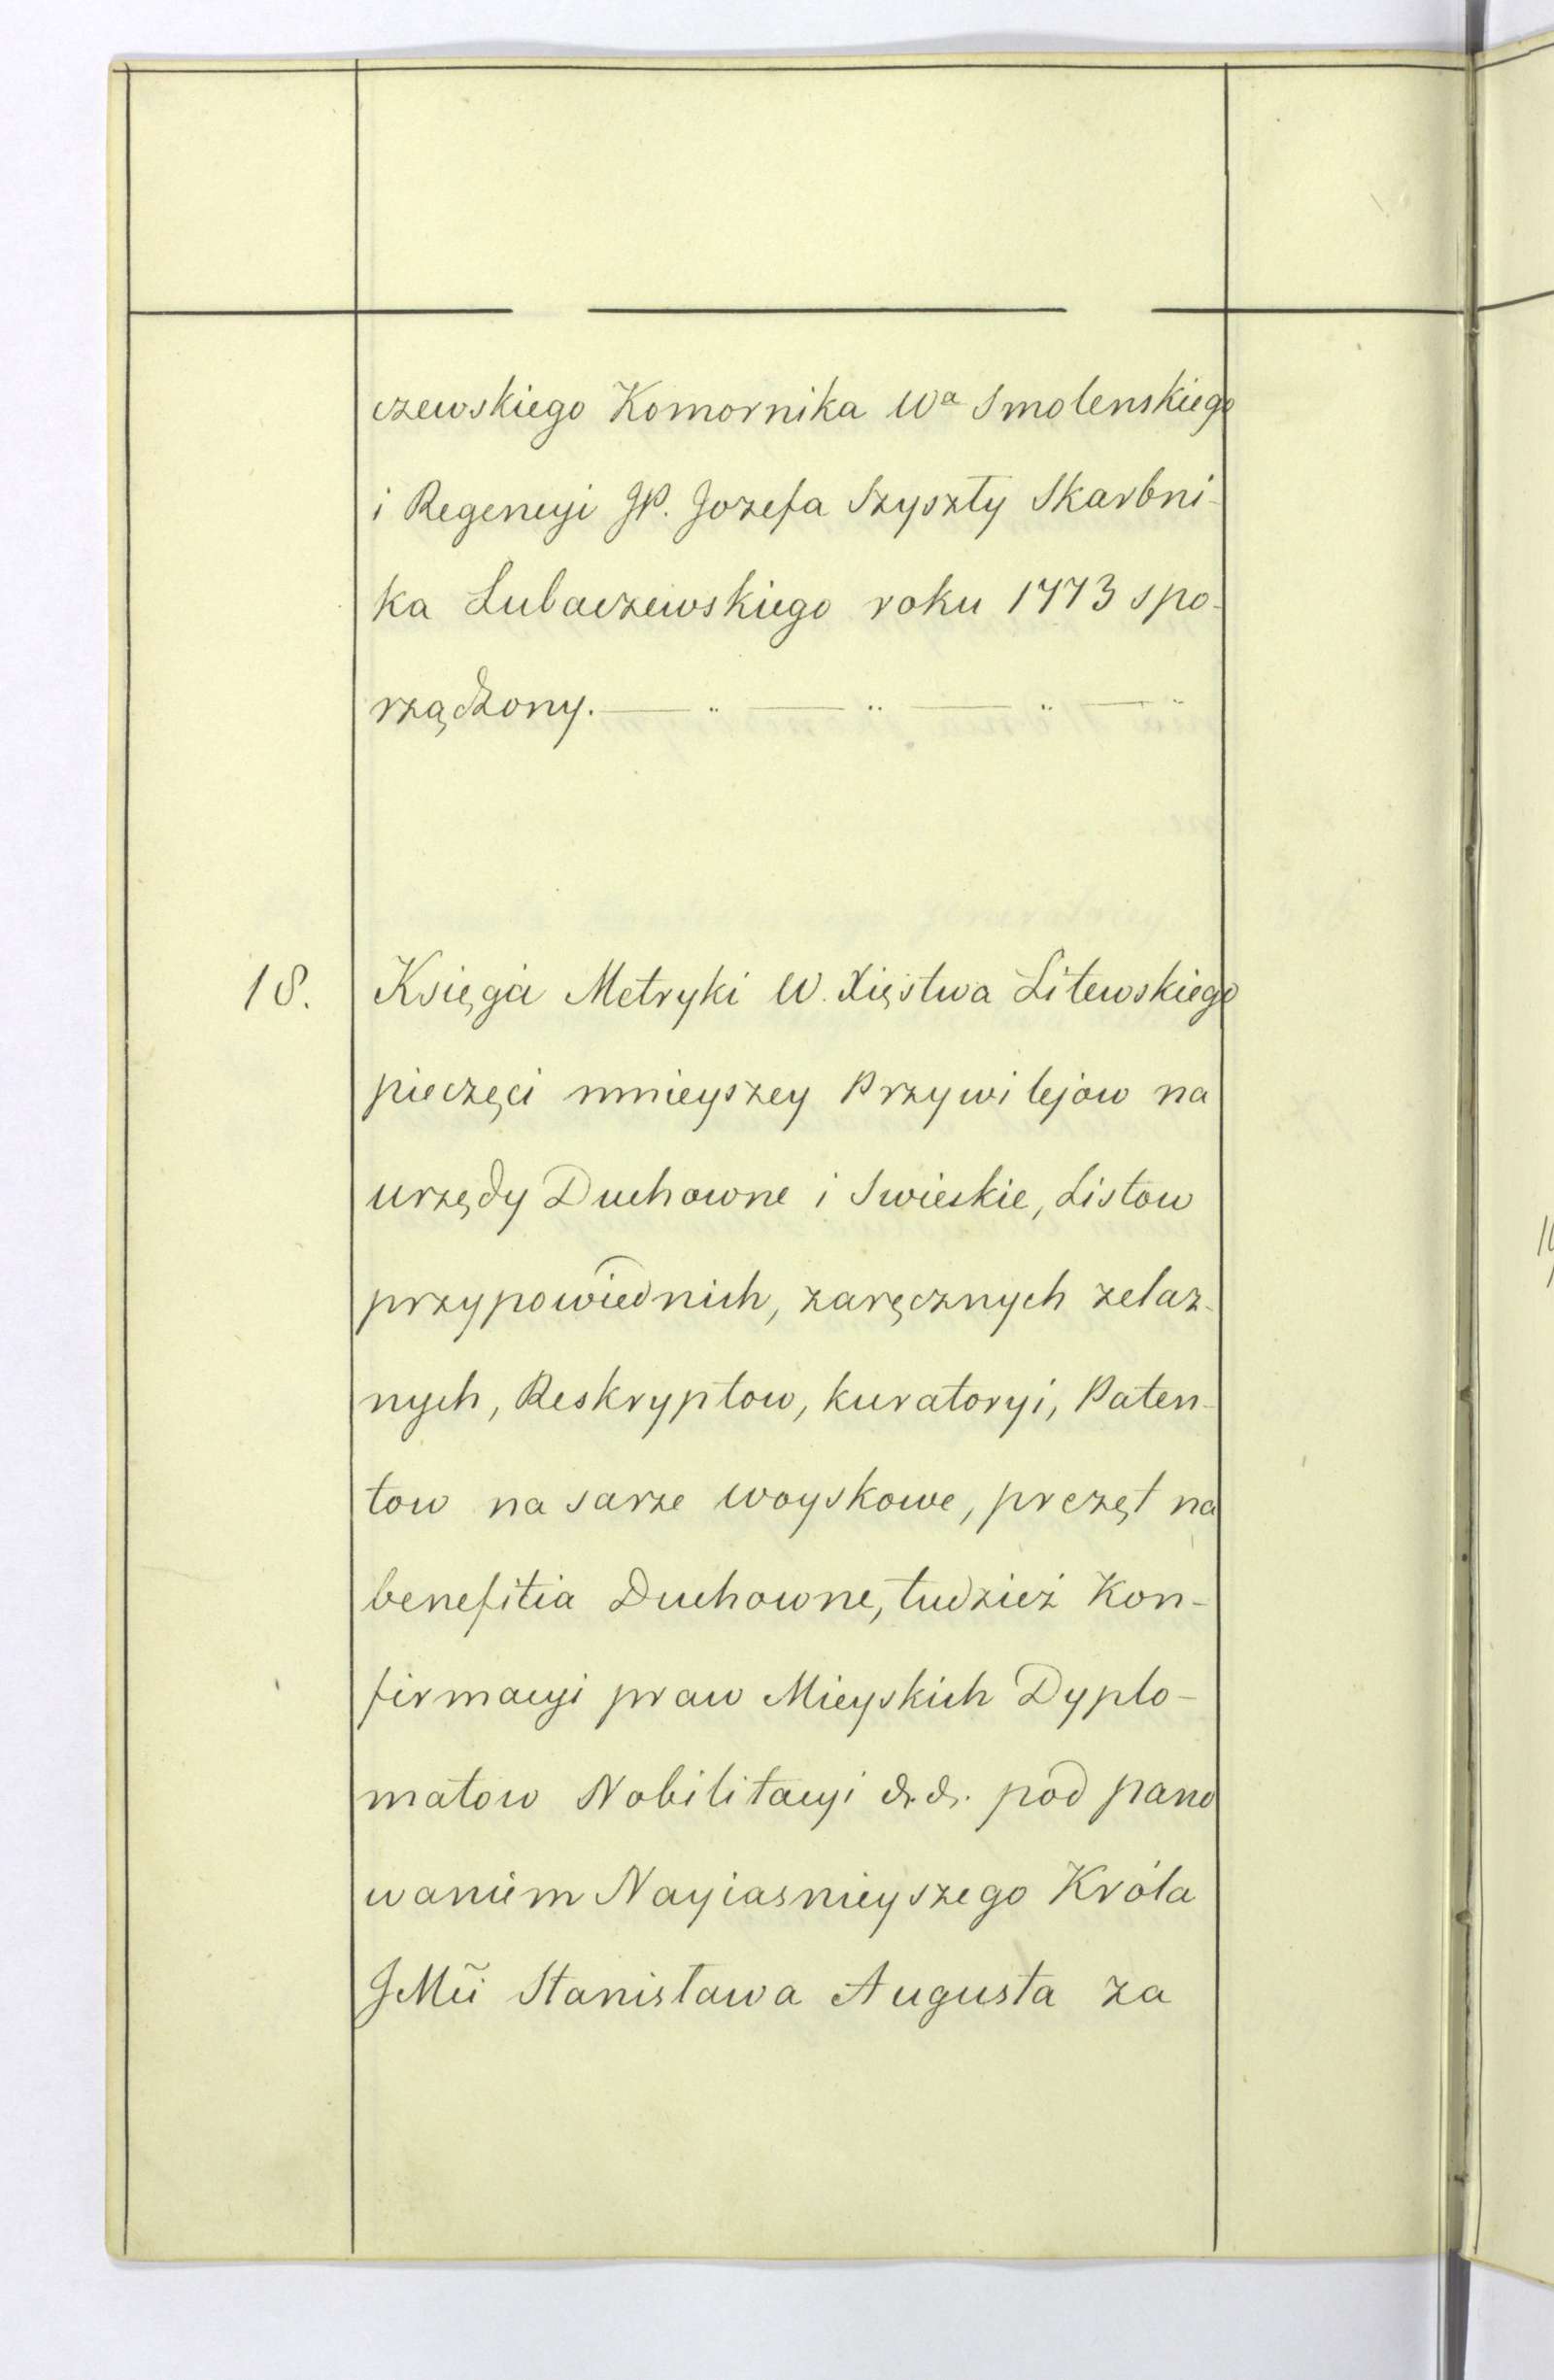 czewskiego Komornika Wa Smolenskiego
i Regencyi JP. Jozefa Szyszły Skarbni-
ka Lubaczewskiego roku 1773 spo-
rządzony.
18. Księga Metryki W. Xięstwa Litewskiego
pieczęci mnieyszey Przywilejow na
urzędy Duchowne i Swieckie, Listow
przypowiednich, zaręcznych zelaz-
nych, Reskryptow, kuratoryi, Paten-
tow na sarze woyskowe, prezęt na
benefitia Duchowne, tudzież Kon-
firmacyi praw Mieyskich Dyplo-
matow Nobilitacyi &. &. pod pano
waniem Nayiasnieyszego Króla
JMci Stanisława Augusta za